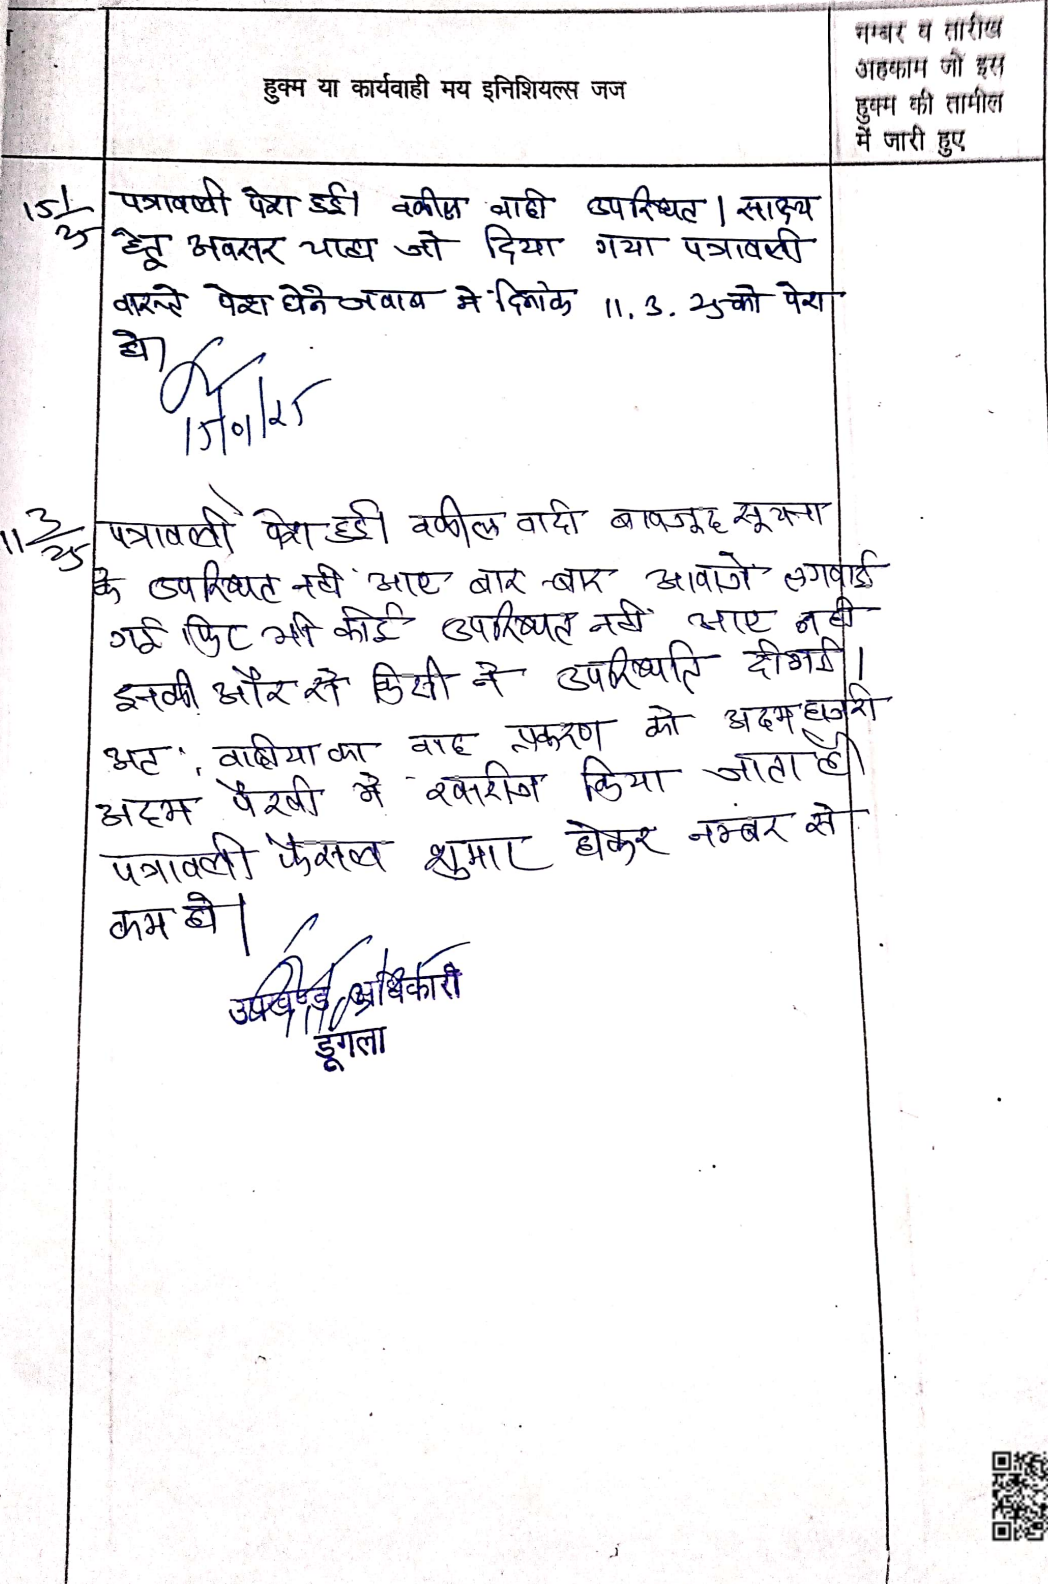 हुक्म या कार्यवाही मय इनिशियल्स जज
नम्बर व तारीख
अहकाम जो इस
हुक्म की तामील
में जारी हुए
15/1/25
पत्रावली पेश हुई। वकील वादी उपस्थित। साक्ष्य
हेतू अवसर चाहा जो दिया गया पत्रावली
वास्ते पेश होने जवाब मे दिनांक 11.3.25 को पेश
हो।
15/01/25
11/3/25
पत्रावली पेश हुई। वकील वादी बावजूद सूचना
के उपस्थित नही आए बार-बार आवाजे लगवाई
गई फिर भी कोई उपस्थित नही आए न ही
इनकी और से किसी ने उपस्थिति दी गई।
अतः वादीया का वाद प्रकरण को अदम हाजरी
अदम पैरवी मे खारीज किया जाता है।
पत्रावली फैसल शुमार होकर नम्बर से
कम हो।
उपखण्ड अधिकारी
डूंगला